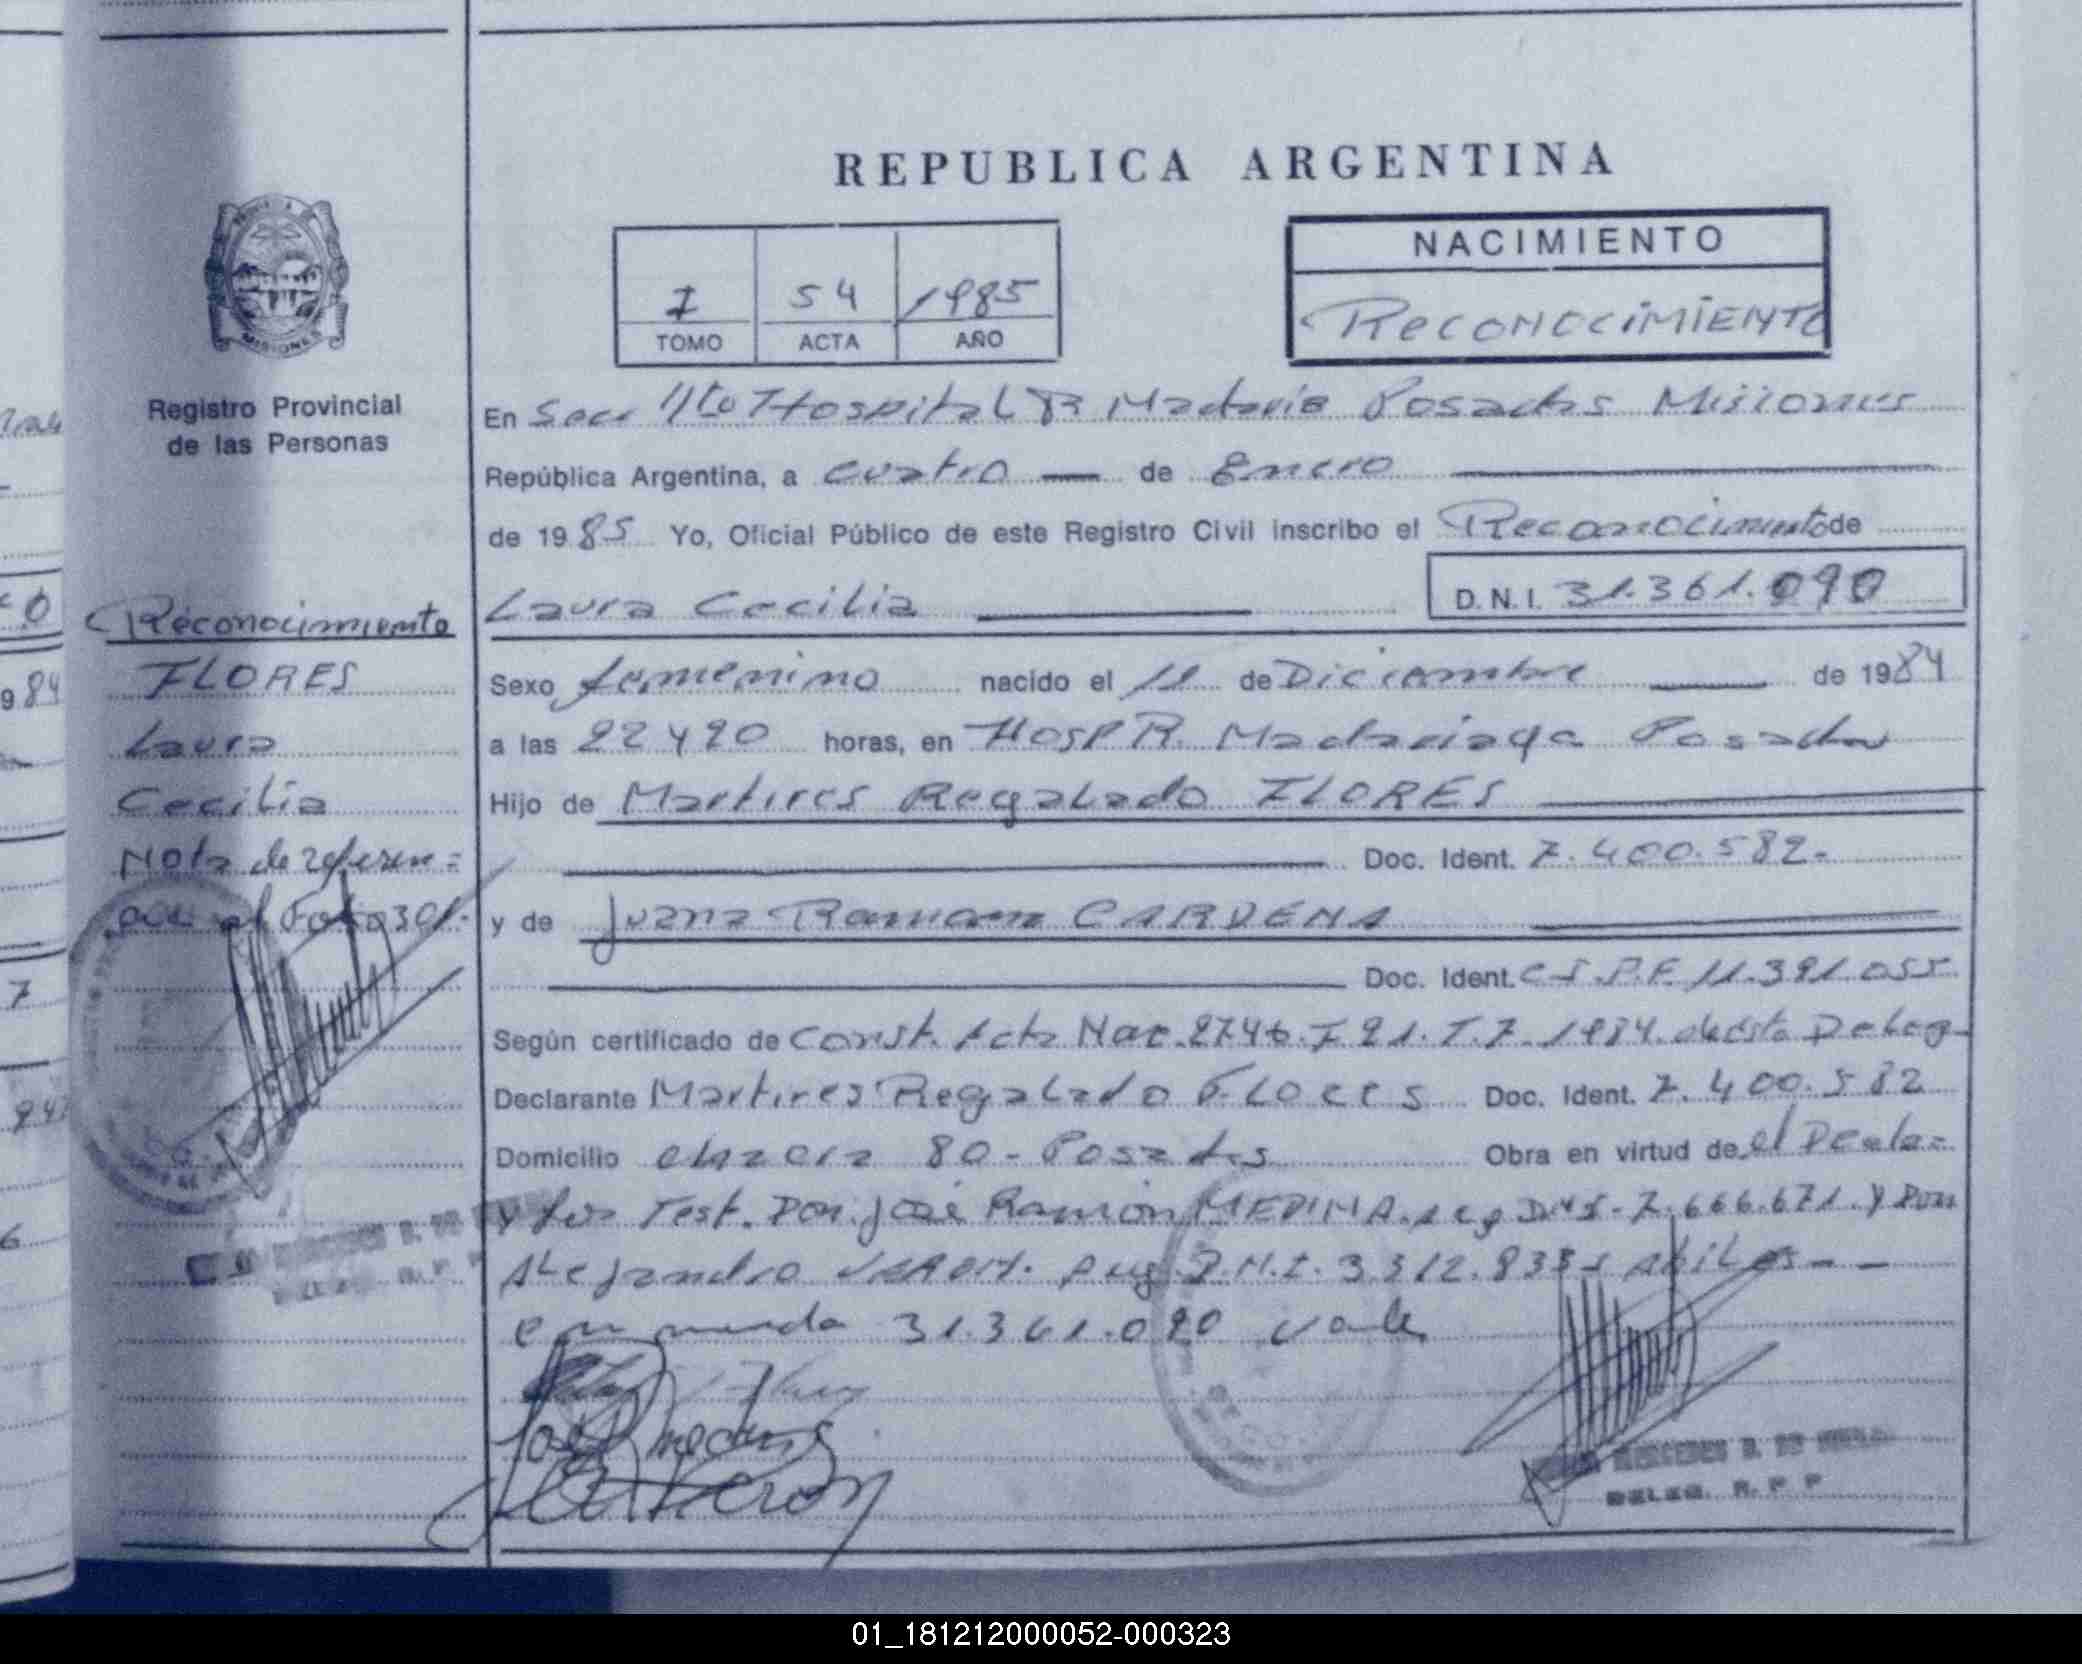 REPUBLICA ARGENTINA
NACIMIENTO
Reconocimiento
I 54 1985
TOMO ACTA AÑO
Registro Provincial
de las Personas
En Secc Hospital R Madaria Posadas Misiones
República Argentina, a cuatro — de Enero
de 1985 Yo, Oficial Público de este Registro Civil inscribo el Reconocimiento de
Laura Cecilia D.N.I. 31.361.090
Reconocimiento
FLORES
Laura
Cecilia
Nota de referen=
al Folio 301.
Sexo femenino nacido el 11 de Diciembre de 1984
a las 22 y 20 horas, en Hosp R. Madariaga Posadas
Hijo de Martires Regalado FLORES
Doc. Ident. 7.400.582.
y de Juana Ramona CARDENA
Doc. Ident. 11.391.055
Según certificado de Const. Acta Nac. 2746. T.7. 1984. de esta Deleg
Declarante Martires Regalado Flores Doc. Ident. 7.400.582
Domicilio chacra 80 - Posadas Obra en virtud de el Decla=
y los Test. Don José Ramón MEDINA. 7.666.671. y Don
Alejandro D.N.I. hábiles - -
enmienda 31.361.090 vale
MERCEDES
DELEG. R. P. P
01_181212000052-000323